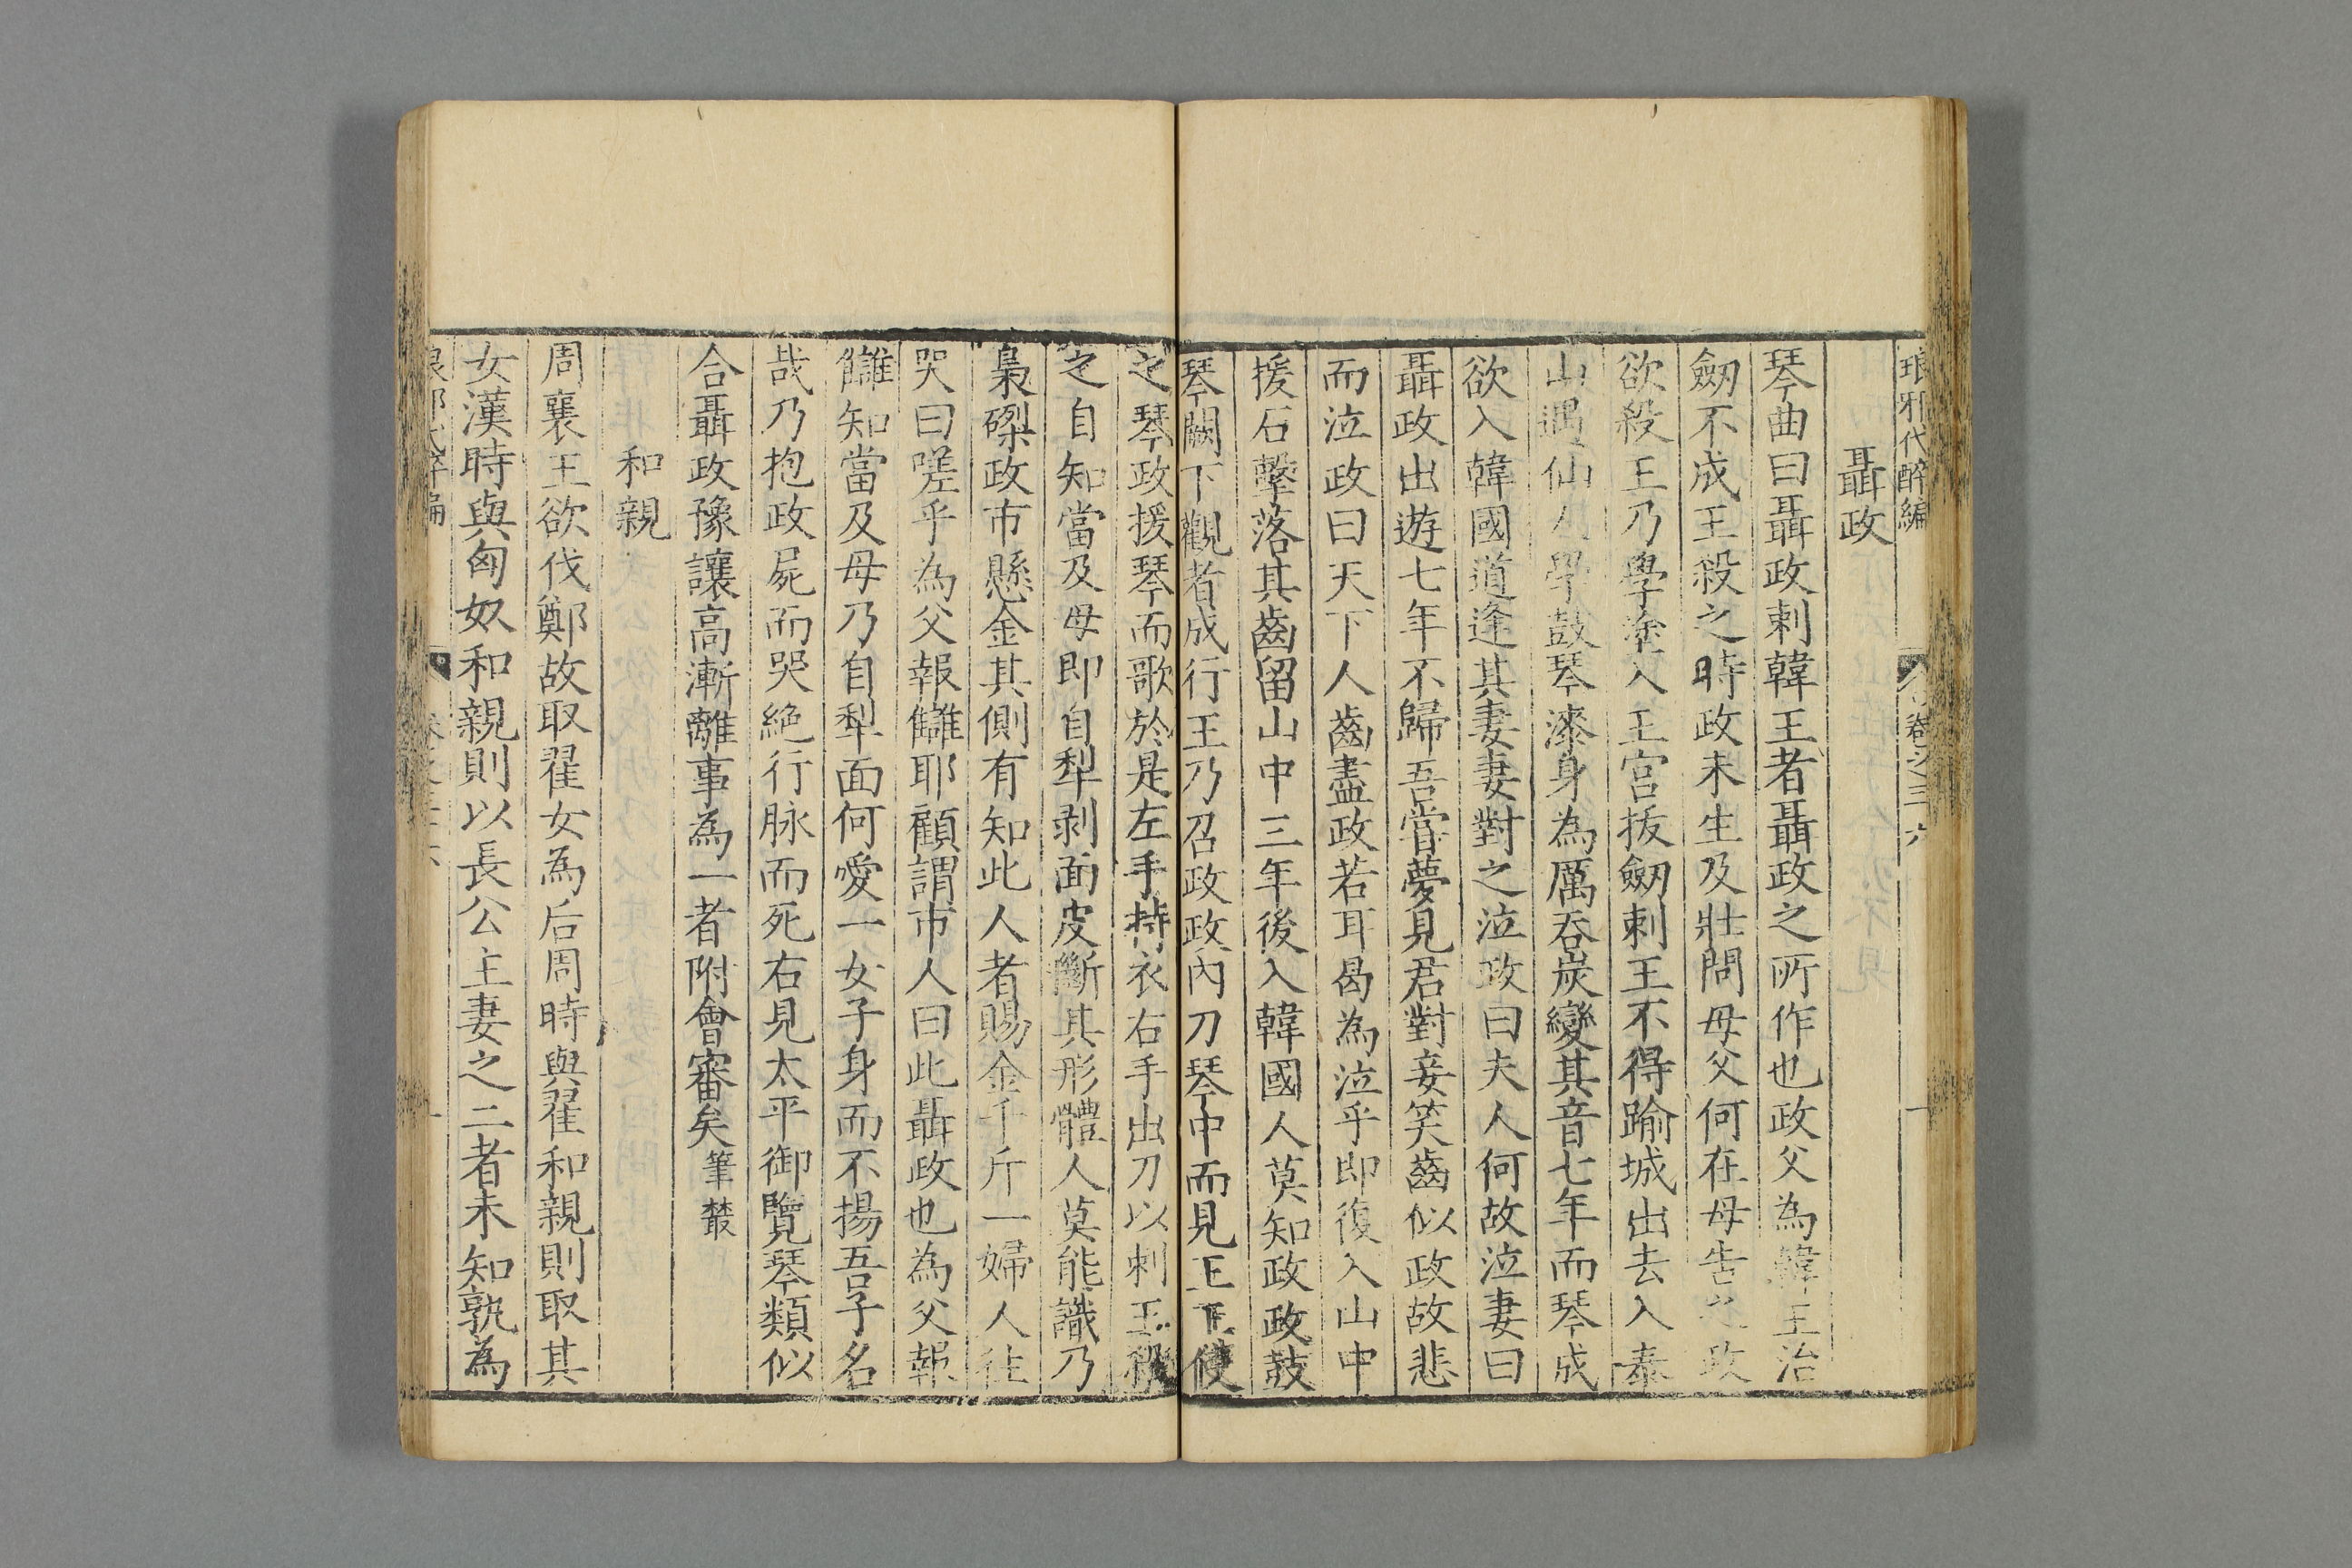 琅邪代醉編 卷之三六 一
聶政
琴曲曰聶政刺韓王者聶政之所作也政父為韓王治
劒不成王殺之時政未生及壯問母父何在母告之政
欲殺王乃學塗入王宮拔劒刺王不得踰城出去入泰
山遇仙人學鼓琴漆身為厲吞炭變其音七年而琴成
欲入韓國道逢其妻妻對之泣政曰夫人何故泣妻曰
聶政出遊七年不歸吾嘗夢見君對妾笑齒似政故悲
而泣政曰天下人齒盡政若耳曷為泣乎即復入山中
援石擊落其齒留山中三年後入韓國人莫知政政鼓
琴闕下觀者成行王乃召政政內刀琴中而見王王使
之琴政援琴而歌於是左手持衣右手出刀以刺王殺
之自知當及母即自犁剥面皮斷其形體人莫能識乃
梟磔政市懸金其側有知此人者賜金千斤一婦人往
哭曰嗟乎為父報讎耶顧謂市人曰此聶政也為父報
讎知當及母乃自犁面何愛一女子身而不揚吾子名
哉乃抱政屍而哭絕行脉而死右見太平御覽琴類似
合聶政豫讓高漸離事為一者附會審矣筆叢
和親
周襄王欲伐鄭故取翟女為后周時與翟和親則取其
女漢時與匈奴和親則以長公主妻之二者未知孰為